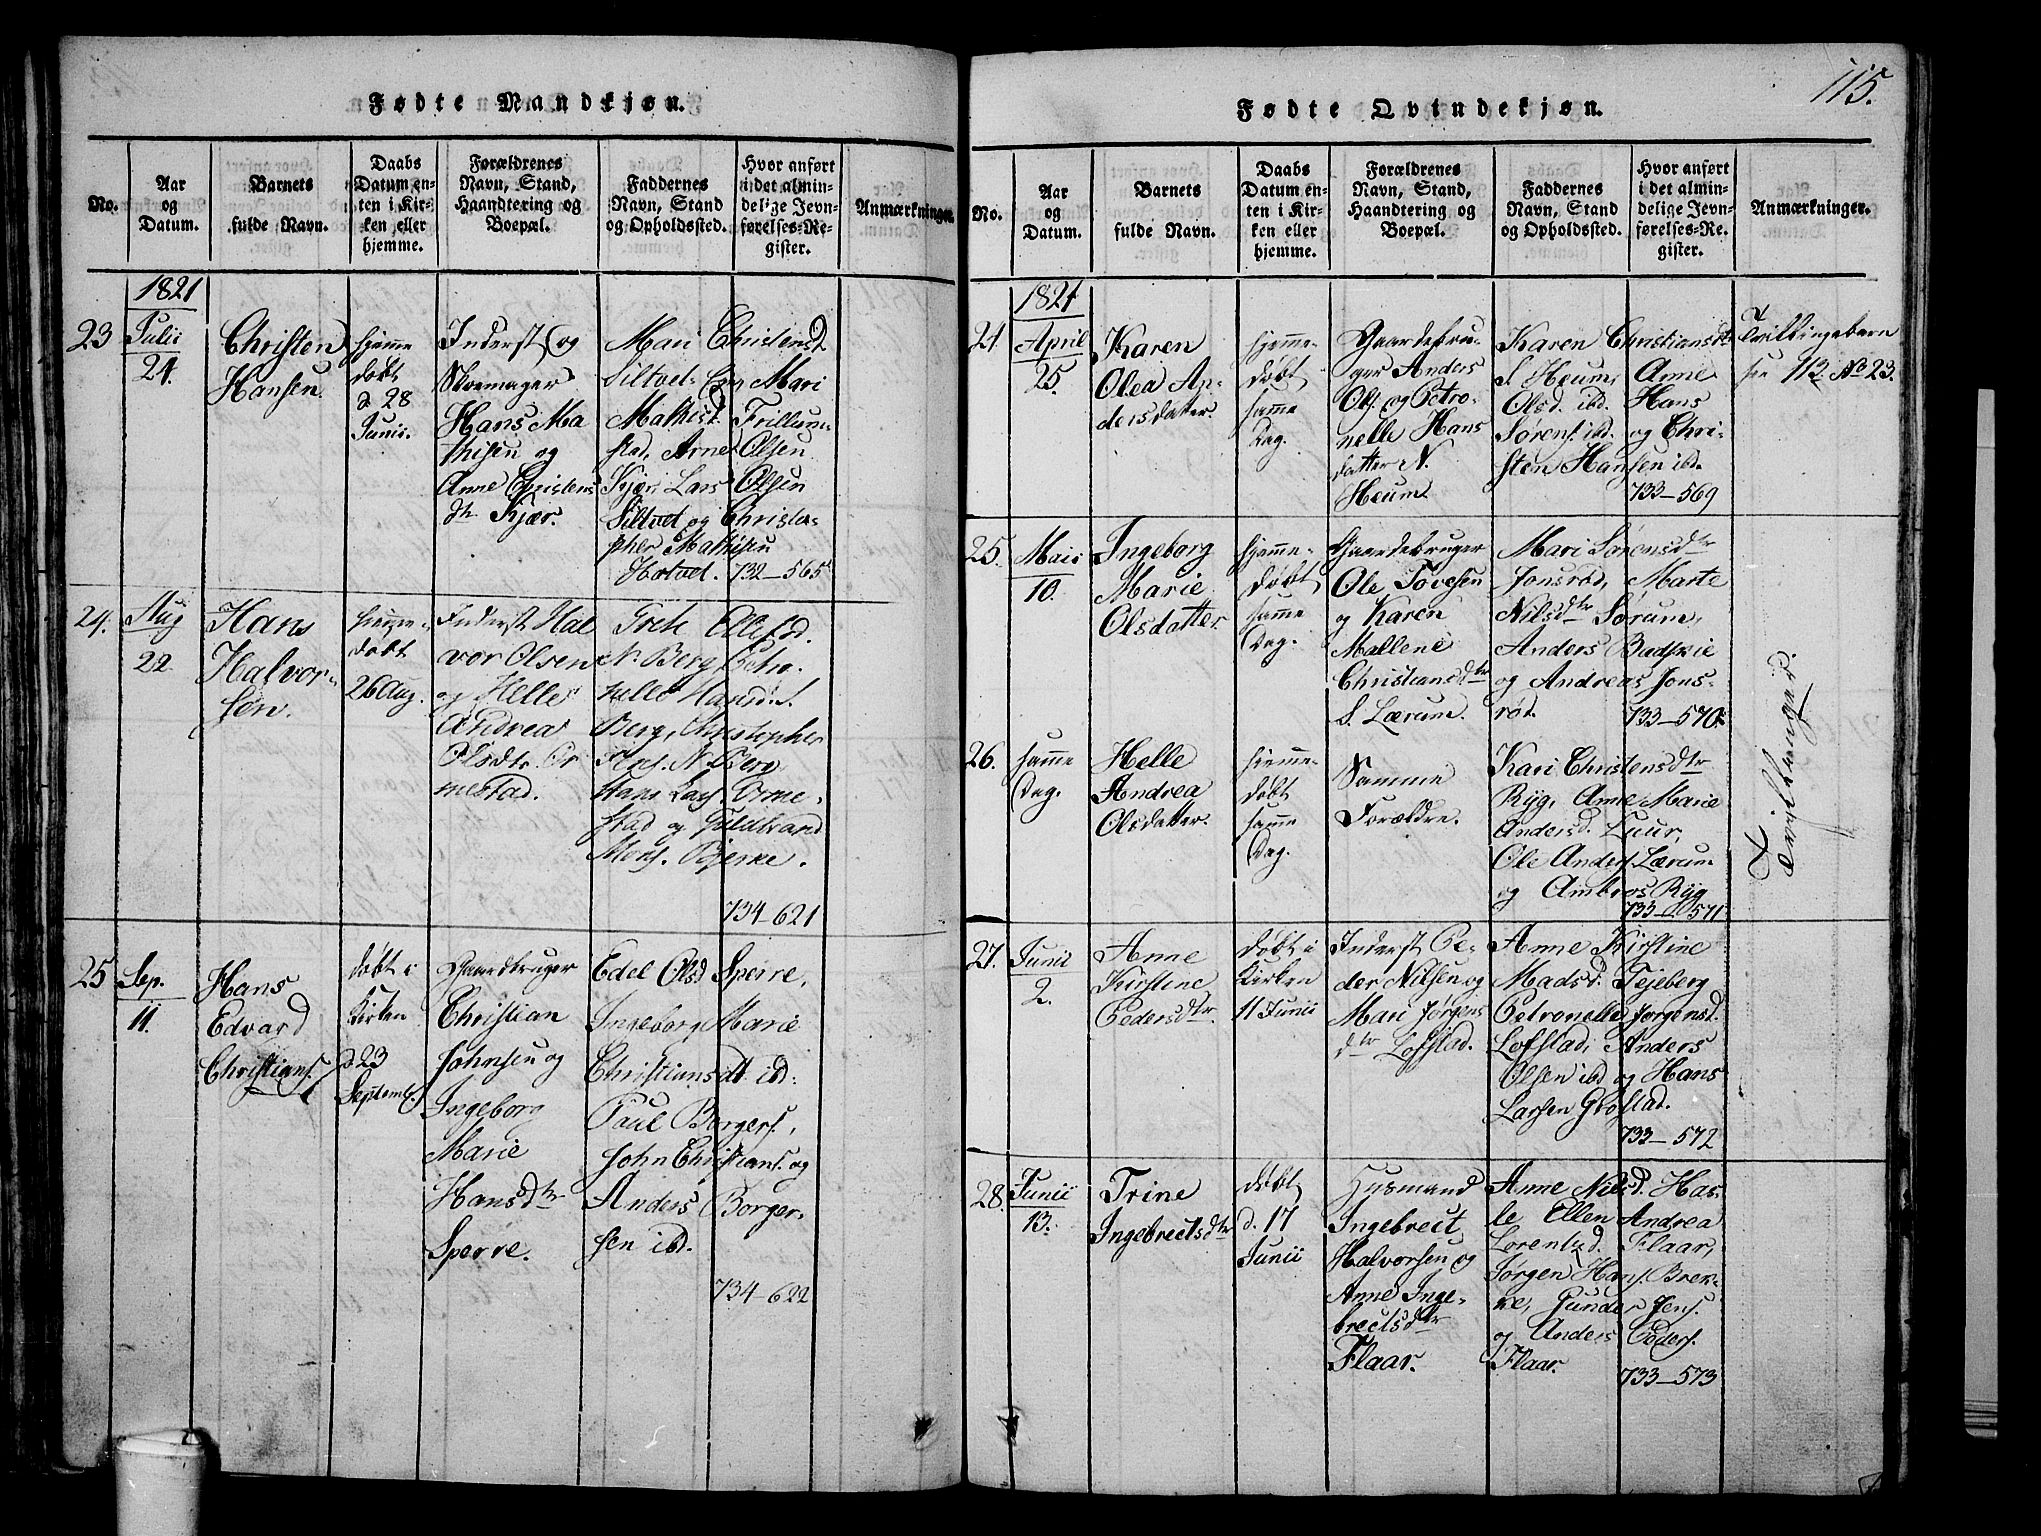 Fødte Mandkjøn.
No.
Aar
og
Datum.
Barnets
fulde Navn.
Daabs
Datum en-
ten i Kir-
ken eller
hjemme.
Forældrenes
Navn, Stand,
Haandtering og
Boepæl.
Faddernes
Navn, Stand
og Opholdssted.
Hvor anført
i det almin-
delige Jevn-
førelses-Re-
gister.
Anmærkninger.
1821
23
Julii
24.
Christen
Hansen.
hjemme
døbt
d 28
Junii.
Inderst og
Skoemager
Hans Ma
thisen og
Anne Christens
dtr Kjær.
Mari Christensd.
Siltvet
Mari
Mathisd. Trillum-
stad, Arne Olsen
Kjær, Lars Olsen
Siltvet og Christo-
pher Mathisen
Hotvet. 732-565
24.
Aug
22
Hans
Halvor-
sen.
hjemme-
døbt
26 Aug.
Inderst Hal
vor Olsen
og Helle
Andrea
Olsdtr Or
mestad.
N. Berg,
Berg, Christopher
N. Berg,
Hans Lars. Orme-
stad og Guldbrand
Mons. Bjerke.
734-621
25
Sep.
11.
Hans
Edvard
Christians.
døbt i
Kirken
d 23
Septemb.
Gaardbruger
Christian
Johnsen og
Ingeborg
Marie
Hansdtr
Sperre.
Edel Olsd Speire,
Ingeborg Marie
Christiansdt. ibd:
Paul Borgers.,
John Christians. og
Anders Borger-
sen ibd.
734-622
115.
Fødte Qvindekjøn.
No.
Aar
og
Datum.
Barnets
fulde Navn.
Daabs
Datum en-
ten i Kir-
ken eller
hjemme.
Forældrenes
Navn, Stand,
Haandtering og
Boepæl.
Faddernes
Navn, Stand
og Opholdssted.
Hvor anført
i det almin-
delige Jevn-
førelses-Re-
gister.
Anmærkninger.
1821
24.
April
25.
Karen
Olea An-
dersdatter
hjemme-
døbt
samme
Dag.
Gaardebru-
ger Anders
Ols. og Petro-
nelle Hans
datter N.
Heum.
Karen Christiansdtr
S. Heum, Anne
Olsd. ibd. Hans
Sørens. ibd. og Chri-
sten Hansen ibd.
733-569
Tvillingebarn
see 113 No 23.
25.
Maii
10.
Ingeborg
Marie
Olsdatter
hjemme-
døbt
samme
Dag.
Gaardebruger
Ole Tovesen
og Karen
Mallene
Christiansdtr
S. Lærum.
Mari Sørensdtr
Jonsrød, Marte
Nilsdtr Sørum,
Anders Badskie
og Andreas Jons-
rød. 733-570.
26.
samme
Dag.
Helle
Andrea
Olsdatter.
hjemme-
døbt
samme
Dag.
Samme
Forældre.
Kari Christensdtr
Ryg, Anne Marie
Andersd. Luur,
Ole Anders. Lærum
og Ambros Ryg
733-571
Tvillinger.
27.
Junii
2.
Anne
Kirstine
Pedersdtr.
døbt i
Kirken
11 Junii
Inderst Pe-
der Nilsen og
Mari Jørgens
dtr Lofstad.
Anne Kirstine
Madsd. Tejeberg
Petronelle Jørgensd.
Lofstad, Anders
Olsen ibd og Hans
Larsen Grøstad.
733-572
28.
Junii
13.
Trine
Ingebrectsdtr
døbt
d. 17
Junii
Husmand
Ingebrect
Halvorsen og
Anne Inge-
brectsdtr
Flaar.
Anne Nielsd. Has-
le Ellen Andrea
Lorentzd. Flaar,
Jørgen Hans. Brek-
ke, Gunder Jens.
og Anders Peders.
Flaar.
733-573